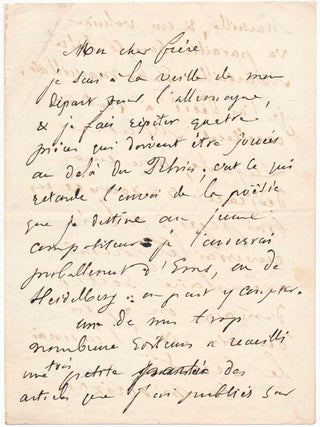 Mon cher frère
je suis à la veille de mon
départ pour l'allemagne,
& je fais répéter quatre
pièces qui doivent être jouées
au delà du Rhin. c'est ce qui
retarde l'envoi de la poësie
que je destine au jeune
compositeur. je l'enverrai
probablement d'Ems, ou de
Heidelberg : on peut y compter.
un de mes trop
nombreux éditeurs a recueilli
une très petite partie des
articles que j'ai publiés sur